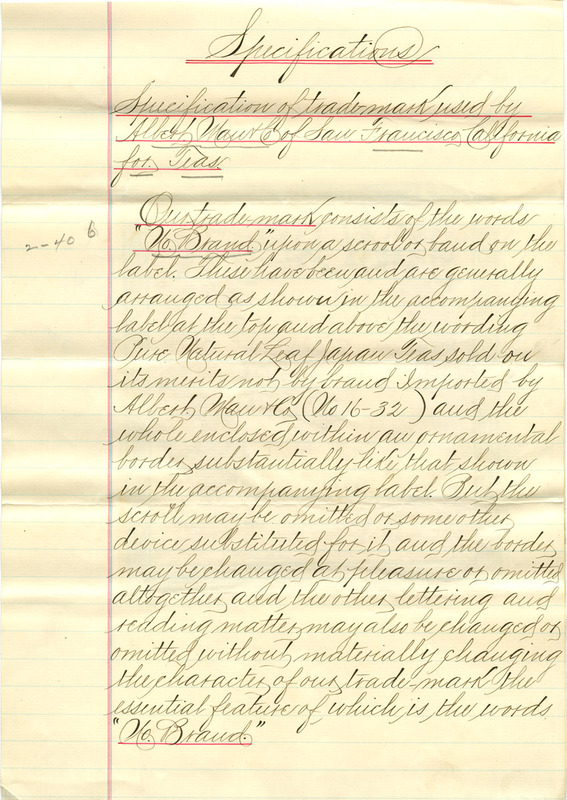 Specifications
Specification of trade-mark used by
Albert Mau & Co of San Francisco, California
for Teas.
Our trade-mark consists of the words
"No. Brand." upon a scrool or band on the
label. These have been and are generally
arranged as shown in the accompanying
label at the top and above the wording
Pure Natural Leaf Japan Teas sold on
its merits not by brand imported by
Albert Mau & Co (No 16-32) and the
whole enclosed within an ornamental
border, substantially like that shown
in the accompanying label. But the
scroll may be omitted or some other
device substituted for it and the border
may be changed at pleasure or omitted
altogether and the other lettering and
reading matter may also be changed or
omitted without materially changing
the character of our trade-mark the
essential feature of which is the words
"No. Brand."
2-40 6